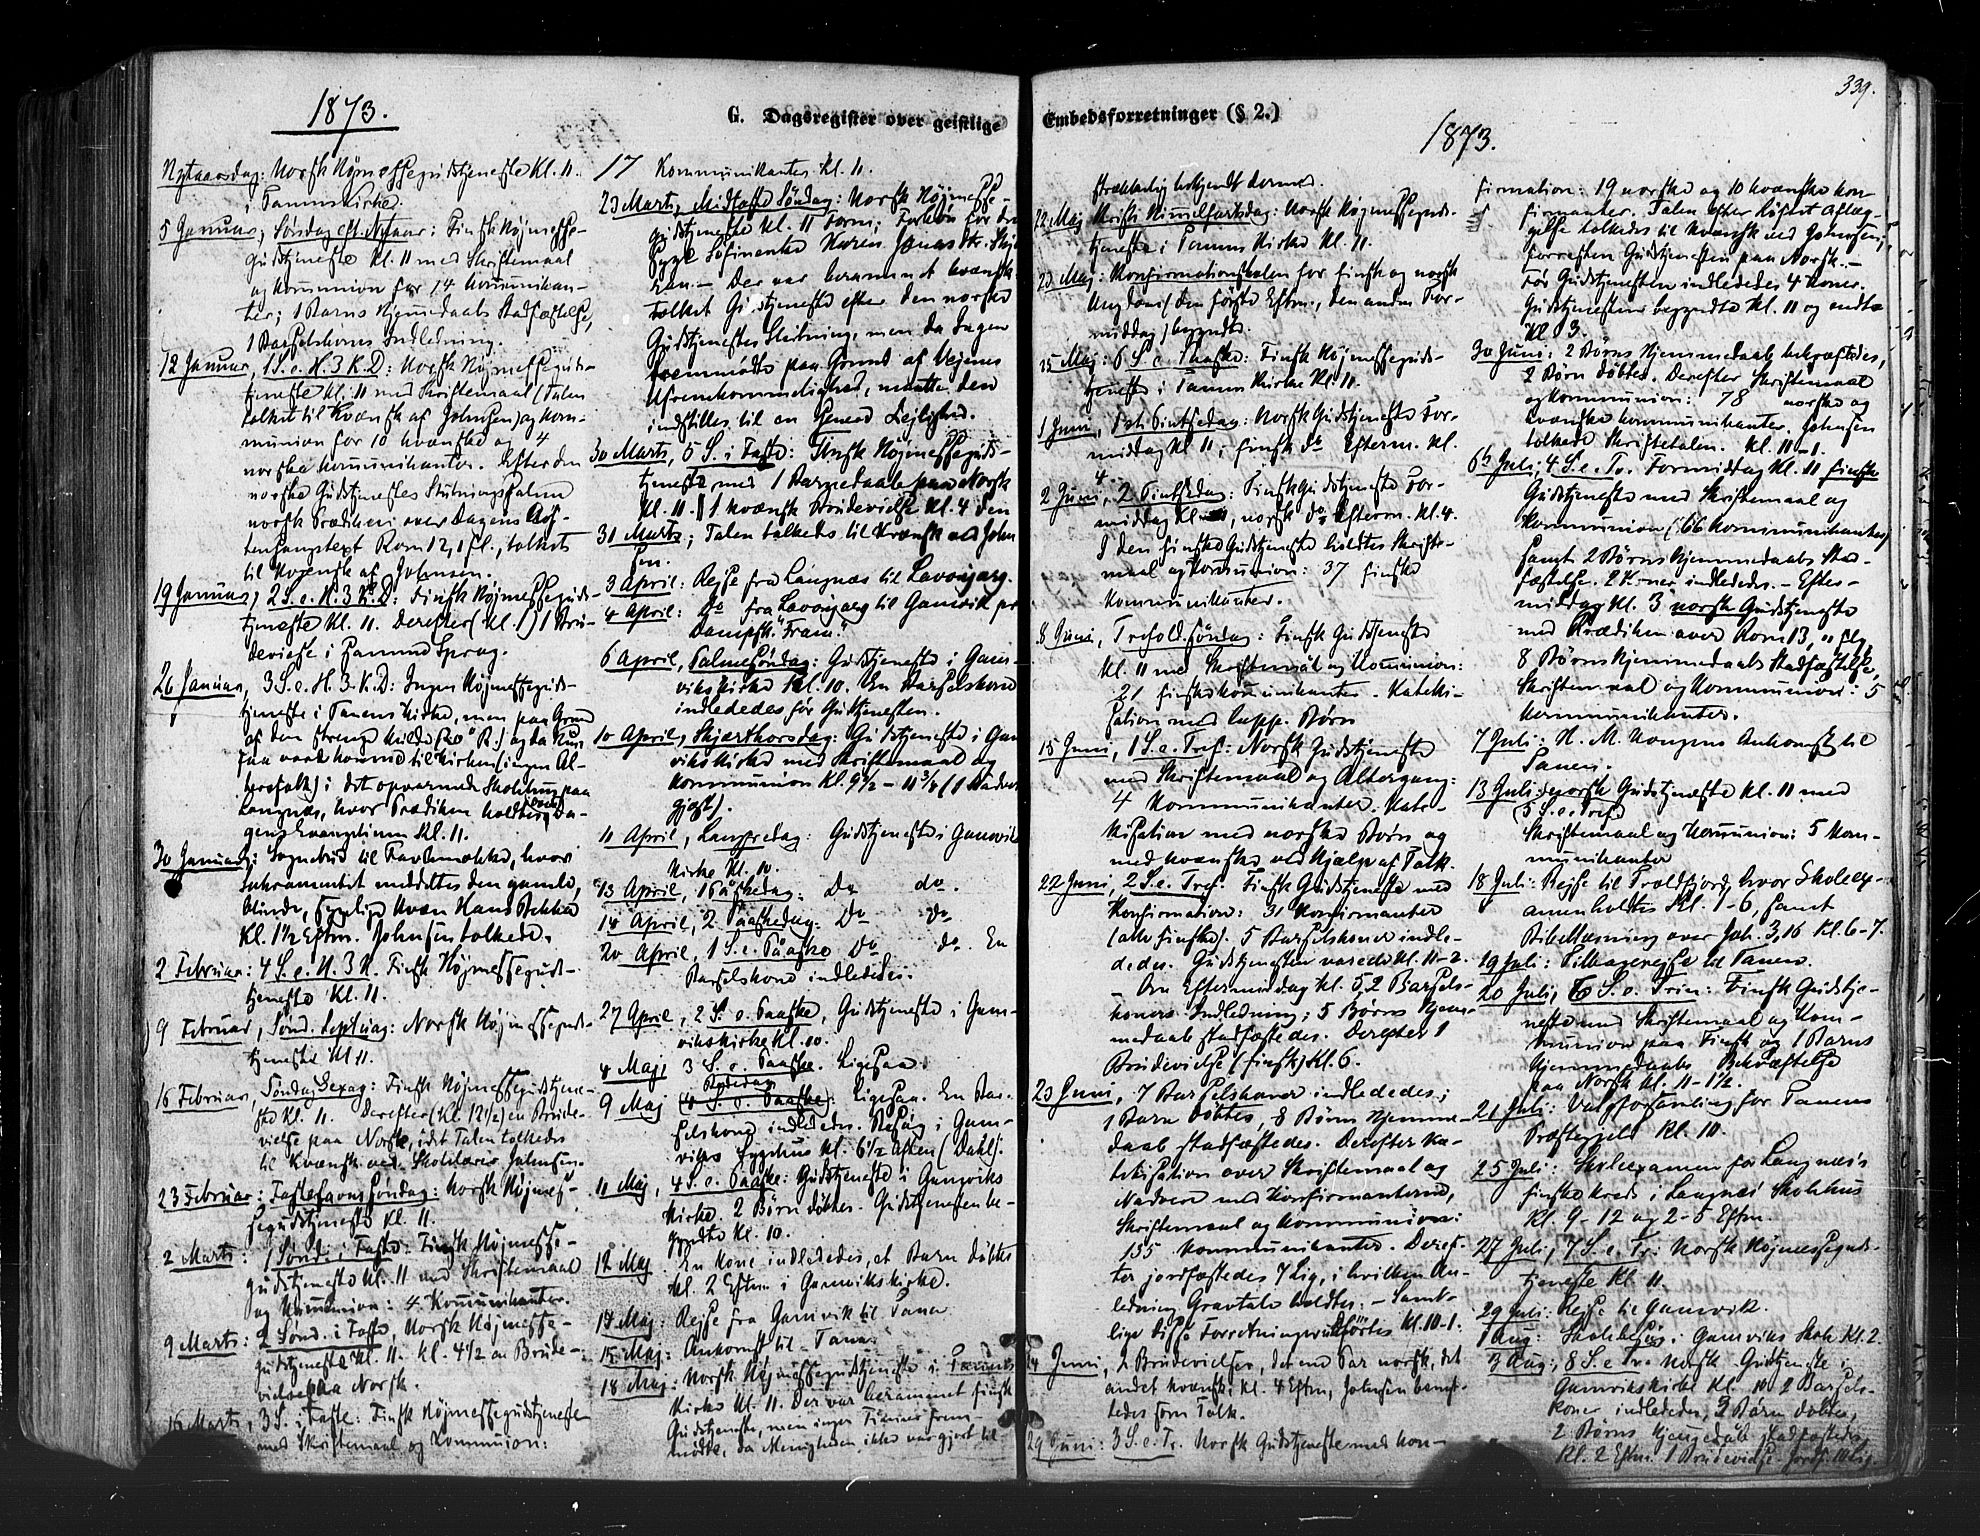 339.
G. Dagsregister over geistlige Embedsforretninger (§ 2.)
1873.
Nytaarsdag: Norsk Højmessegudstjeneste Kl. 11.
i Tanens Kirke.
5 Januar, Sønddag eft. Nytaar: Finsk Højmesse-
gudstjeneste Kl. 11 med Skriftemaal
og Kommunion for 14 Kommunikan-
ter; 1 Barns Hjemmedaabs Stadfæstelse,
1 Barselskones Indledning.
12 Januar, 1 S. e. H. 3 K. D: Norsk Højmesseguds-
tjeneste Kl. 11 med Skriftemaal (Talen
tolket til Kvænsk af Johnsen) og Kom-
munion for 10 kvænske og 4
norske Kommunikanter. Efter den
norske Gudstjenestes Slutningspsalme
norsk Prædiken over Dagens Af-
tensangstext Rom 12, 1 fl., tolket
til Kvænsk af Johnsen.
19 Januar, 2 S. e. H. 3 K. D: Finsk Højmesseguds-
tjeneste Kl. 11. Derefter (Kl. 1) 1 Bru-
devielse i samme Sprog.
26 Januar, 3 S. e. H. 3. K. D: Ingen Højmesseguds-
tjeneste i Tanens Kirke, men paa Grund
af den strenge Kulde (20° R.) og da kun
faa vare komne til Kirken (ingen Al-
tersfolk) i det opvarmede Skolehus paa
Langnæs, hvor Prædiken holdtes over Da-
gens Evangelium Kl. 11.
30 Januar: Sognebud til, hvor
Sakramentet meddeltes den gamle,
blinde, sygelige Kvæn Hans Pekka
Kl. 1½ Eftm. Johnsen tolkede.
2 Februar: 4 S. e. H. 3 K. Finsk Højmesseguds-
tjeneste Kl. 11.
9 Februar, Sønd. Septuag: Norsk Højmesseguds-
tjeneste Kl 11.
16 Februar, Søndag Sexag: Finsk Højmessegudstjene-
ste Kl. 11. Derefter (Kl. 12½) en Brude-
vielse paa Norsk, idet Talen tolkedes
til Kvænsk ved Skolelærer Johnsen.
23 Februar: Fastelavns Søndag: Norsk Højmes-
segudstjeneste Kl. 11.
2 Marts: 1 Sønd. i Faste: Finsk Højmesse-
gudstjeneste Kl. 11 med Skriftemaal
og Kommunion: 4 Kommunikanter.
9 Marts: 2 Sønd. i Faste, Norsk Højmesse-
gudstjeneste Kl. 11. Kl. 4½ en Brude-
vielse paa Norsk.
16 Marts, 3 S. i Faste: Finsk Højmessegudstjeneste
med Skriftemaal og Kommunion:
17 Kommunikanter. Kl. 11.
23 Marts, Midfaste Søndag: Norsk Højmesse-
gudstjeneste Kl. 11 Form; Forbøn for den
syge Løsfinente Karen Jonas
. Der var berammet kvænsk
tolket Gudstjeneste efter den norske
Gudstjenestes Slutning, men da Ingen
fremmødte paa Grund af Vejenes
Ufremkommelighed, maatte den
indstilles til en senere Lejlighed.
30 Marts, 5 S. i Faste: Finsk Højmesseguds-
tjeneste med 1 Barnedaab paa Norsk
Kl. 11. 1 kvænsk Brudevielse Kl. 4 den
31 Marts; Talen tolkedes til Kvænsk ved John-
sen.
3 April: Rejse fra Langnæs til Lavonjarg.
4 April: Do fra Lavonjarg til Gamvik pr
Dampsk. "Fram."
6 April, Palmesøndag: Gudstjeneste i Gam-
viks Kirke Kl. 10. En Barselskone
indlededes før Gudtjenesten.
10 April, Skjærthorsdag: Gudstjeneste i Gam
viks Kirke med Skriftemaal og
Kommunion Kl. 9½ – 11¾ (1
gjest).
11 April, Langfredag: Gudstjeneste i Gamvik
Kirke Kl. 10.
13 April, 1 Paaskedag: Do do.
14 April, 2. Paaskedag: Do do
20 April, 1 S. e. Paaske Do do. En
Barselskone indlededes.
27 April, 2 S. e. Paaske, Gudstjeneste i Gam-
vikskirke Kl. 10.
4 Maj, 3 S. e. Paaske. Ligesaa.
Bededag
9 Maj (4 S. e. Paaske): Ligesaa. En Bar-
selskone indlededes. Besøg i Gam-
viks Sygehus Kl. 6½ Aften (Dahl).
11 Maj, 4 S. e. Paaske: Gudstjeneste i Gamviks
Kirke. 2 Børn døbtes. Gudstjenesten be-
gyndte Kl. 10.
12 Maj. En Kone indlededes, et Barn døbtes
Kl. 2 Eftm i Gamvikskirke.
14 Maj: Rejse fra Gamvik til Tana.
15 Maj: Ankomst til Tana.
18 Maj: Norsk Højmessegudstjeneste i Tanens
Kirke Kl. 11. Der var berammet finsk
Gudstjeneste, men ingen Finner frem-
mødte, da Menigheden ikke var gjort til-
1873.
strækkelig bekjendt dermed.
22 Maj Kristi Himmelfartsdag: Norsk Højmesseguds-
tjeneste i Tanens Kirke Kl. 11.
23 Maj: Konfirmationsskolen for finsk og norsk
Ungdom (den første Eftm., den anden For-
middag) begyndte.
25 Maj: 6 S. e. Paaske: Finsk Højmesseguds-
tjeneste i Tanens Kirke Kl. 11.
1 Juni, 1ste Pintsedag: Norsk Gudstjeneste For-
middag Kl 11; finsk do Efterm. Kl.
4.
2 Juni, 2 Pintsedag: Finsk Gudstjeneste For-
middag Kl. 11, norsk do Efterm. Kl. 4.
I den finske Gudstjeneste holdtes Skrifte-
maal og Kommunion: 37 finske
Kommunikanter.
8 Juni, Trefold. søndag: Finsk Gudstjeneste
Kl. 11 med Skriftemaal og Kommunion:
21 finske Kommunikanter. Kateki-
sation med lapp. Børn
15 Juni, 1 S. e. Tref: Norsk Gudstjeneste
med Skriftemaal og Altergang:
4 Kommunikanter. Kate-
kisation med norske Børn og
med kvænske ved Hjælp af Tolk.
22 Juni, 2 S. e. Tref. Finsk Gudstjeneste med
Konfirmation: 31 Konfirmanter
(alle finske). 5 Barselskoner indle-
dedes. Gudstjenesten varede Kl. 11–2.
– Om Eftermiddag Kl. 5, 2 Barsels-
koners Indledning; 5 Børns Hjem-
medaab stadfæstedes. Derefter 1
Brudevielse (finsk) Kl. 6.
23 Juni, 7 Barselskoner indlededes;
1 Barn døbtes, 8 Børns Hjemme-
daab stadfæstedes. Derefter Ka-
tekisation over Skriftemaal og
Nadvere med Konfirmanterne,
Skriftemaal og Kommunion:
135 Kommunikanter. Deref-
ter jordfæstedes 7 Lig, i hvilken An-
ledning Gravtale holdtes. – Samt-
lige disse Forretninger udførtes Kl. 10-1.
24 Juni, 2 Brudevielser, det ene Par norsk, det
andet kvænsk. Kl. 4 Eftm, Johnsen benyt-
tedes som Tolk.
29 Juni: 3 S. e. Tr. Norsk Gudstjeneste med Kon-
firmation: 19 norske og 10 kvænske Kon-
firmanter. Talen efter Løftets Aflæg-
gelse tolkedes til Kvænsk ved Johnsen;
forresten Gudstjenesten paa Norsk. –
Før Gudstjenesten indlededes 4 Koner.
Gudstjenesten begyndte Kl. 11 og endte
Kl. 3.
30 Juni: 2 Børns Hjemmedaab bekræftedes,
2 Børn døbtes. Derefter Skriftemaal
og Kommunion: 78 norske og
kvænske Kommunikanter. Johnsen
tolkede Skriftetalen. Kl. 11–1.
6te Juli, 4 S. e. Tr. Formiddag Kl. 11 finske
Gudstjeneste med Skriftemaal og
Kommunion (66 Kommunikanter)
samt 2 Børns Hjemmedaabs Stad-
fæstelse. 2 Koner indlededes. – Efter-
middag Kl. 3 norsk Gudstjeneste
med Prædiken over Rom 13, 11 flg
8 Børns Hjemmedaabs Stadfæstelse,
Skriftemaal og Kommunion: 5
Kommunikanter.
7 Juli: H. M. Kongens Ankomst til
Tanen.
13 Juli: Norsk Gudstjeneste Kl. 11 med
(5 S. e. Tref)
Skriftemaal og Kommunion: 5 Kom-
munikanter
18 Juli: Rejse til Troldfjord, hvor Skoleex-
amen holdtes Kl. 1–6, samt
Bibellæsning over Joh. 3, 16 Kl. 6-7.
19 Juli: Tilbagerejse til Tanen.
20 Juli, 6 S. e. Trin: Finsk Gudstje-
neste med Skriftemaal og Kom-
munion paa Finsk og 1 Barns
Hjemmedaabs Bekræftelse
paa Norsk Kl. 11–1½.
21 Juli: Valgforsamling for Tanens
Præstegjeld Kl. 10.
25 Juli: Skoleexamen for Langnæs's
finske Kreds i Langnæs Skolehus
Kl. 9–12 og 2–5 Eftm.
27 Juli, 7 S. e Tr: Norsk Højmesseguds-
tjeneste Kl. 11.
29 Juli: Rejse til Gamvik.
1 Aug: Skolebesøg i Gamviks Skole Kl. 2.
3 Aug: 8 S. e Tr. Norsk Gudstjeneste i
Gamvikskirke Kl. 10 2 Barsels-
koner indlededes, 2 Børn døbtes,
2 Børns Hjemmedaab stadfæstedes
Kl. 2 Eftm. 1 Brudevielse. Jordf. 10 Lig.